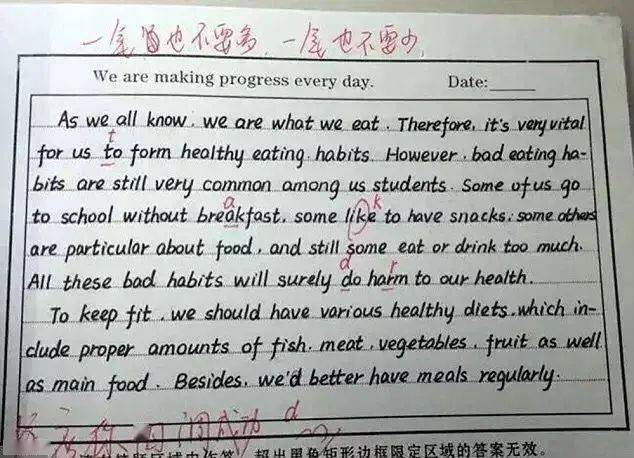 一定也不要多,一定也不要少
We are making progress every day. Date:
As we all know, we are what we eat. Therefore, it's very vital
t
for us to form healthy eating habits. However, bad eating ha-
bits are still very common among us students. Some of us go
a k
to school without breakfast, some like to have snacks, some others
are particular about food, and still some eat or drink too much.
d r
All these bad habits will surely do harm to our health.
To keep fit, we should have various healthy diets, which in-
clude proper amounts of fish, meat, vegetables, fruit as well
as main food. Besides, we'd better have meals regularly.
成功 d
超出黑角矩形边框限定区域的答案无效。